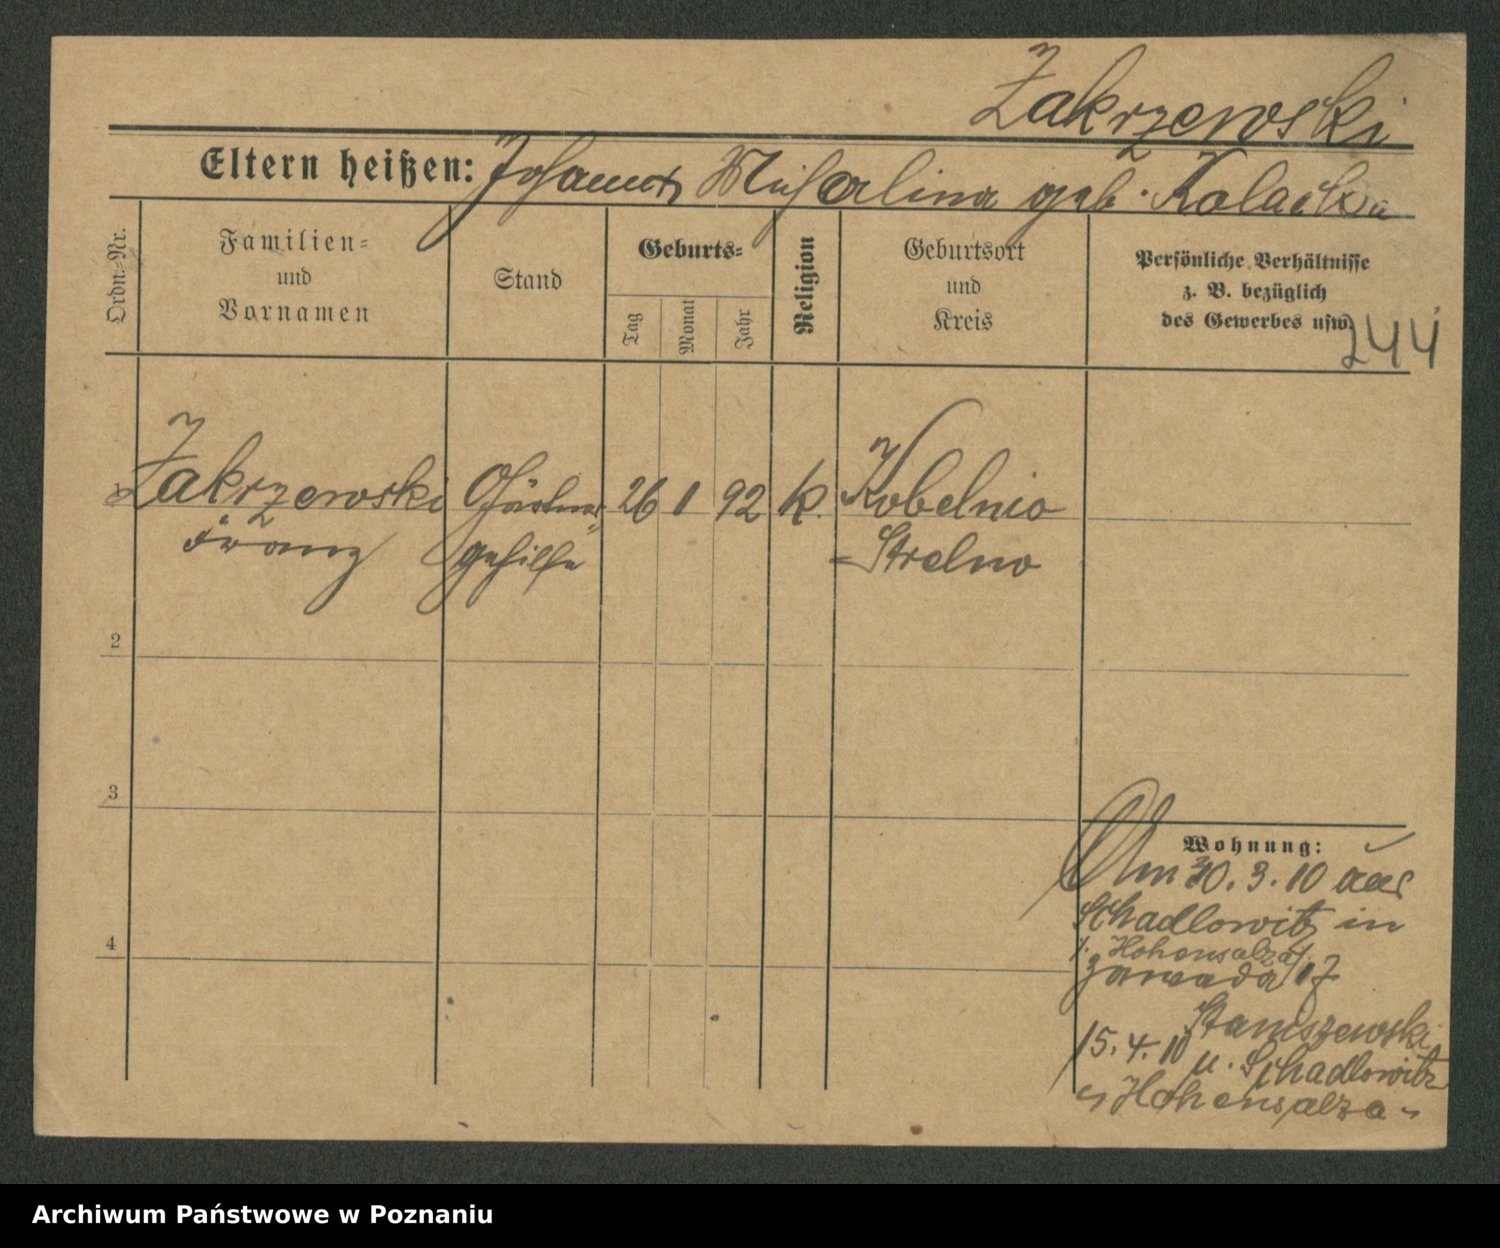 Zakrzewski
Eltern heißen: Johann Michalina geb. Kolacka
Ordn.-Nr.
Familien-
und
Vornamen
Stand
Geburts-
Tag
Monat
Jahr
Religion
Geburtsort
und
Kreis
Persönliche Verhältnisse
z. B. bezüglich
des Gewerbes usw.
244
1 Zakrzewski Gärtner 26 1 92 k. Kobelnio
Franz gehilfe - Strelno
2
3
4
Wohnung:
Am 30. 3. 10 aus
Schadlowitz in
/: Hohensalza /:
Zawada 17
Staniszewski
15. 4. 10 n. Schadlowitz
Hohensalza